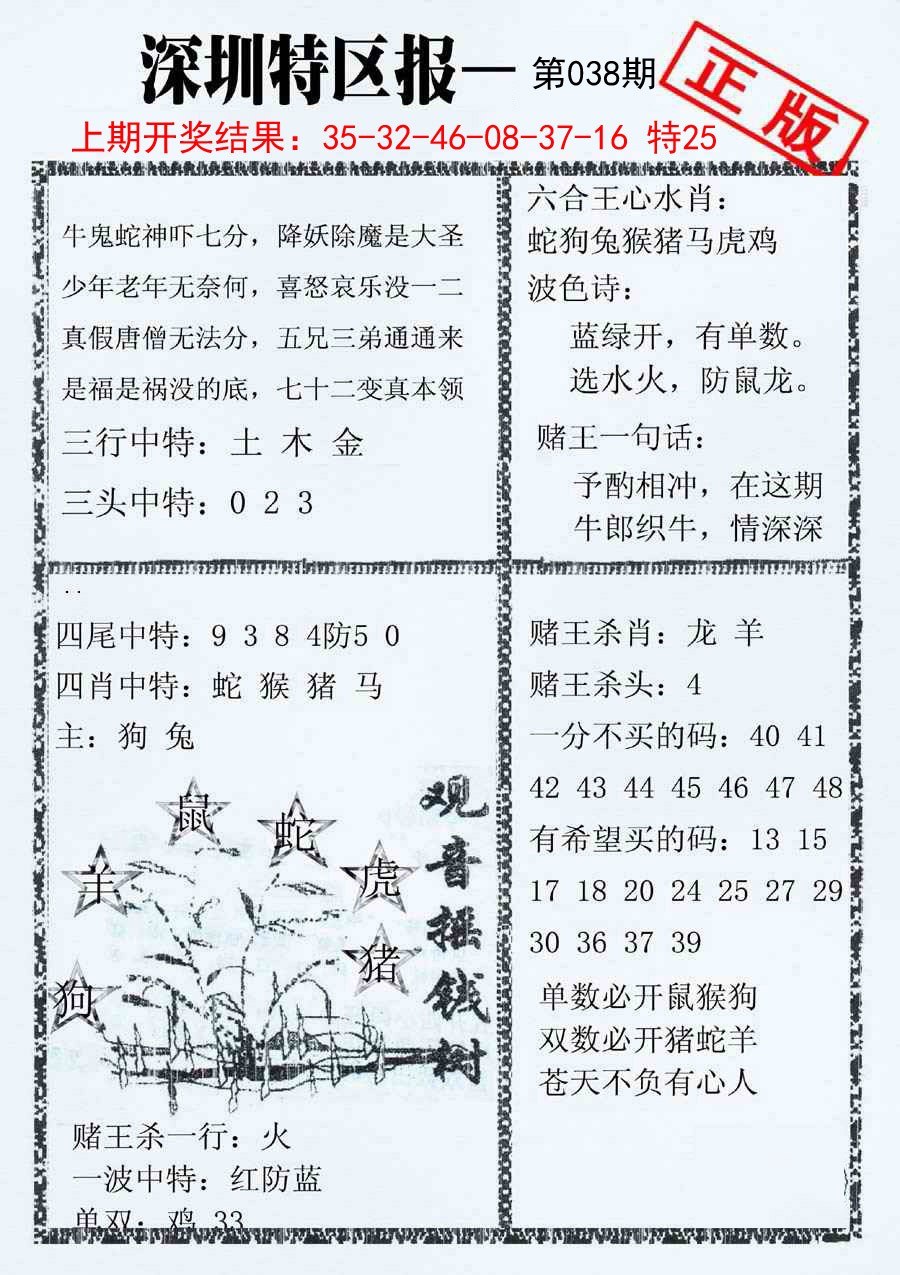 深圳特区报一 第038期
正版
上期开奖结果：35-32-46-08-37-16 特25
牛鬼蛇神吓七分，降妖除魔是大圣
少年老年无奈何，喜怒哀乐没一二
真假唐僧无法分，五兄三弟通通来
是福是祸没的底，七十二变真本领
三行中特：土 木 金
三头中特：0 2 3
六合王心水肖：
蛇狗兔猴猪马虎鸡
波色诗：
蓝绿开，有单数。
选水火，防鼠龙。
赌王一句话：
予酌相冲，在这期
牛郎织牛，情深深
四尾中特：9 3 8 4防5 0
四肖中特：蛇 猴 猪 马
主：狗 兔
鼠
蛇
羊
虎
猪
狗
观音摇钱树
赌王杀一行：火
一波中特：红防蓝
单双：鸡 33
赌王杀肖：龙 羊
赌王杀头：4
一分不买的码：40 41
42 43 44 45 46 47 48
有希望买的码：13 15
17 18 20 24 25 27 29
30 36 37 39
单数必开鼠猴狗
双数必开猪蛇羊
苍天不负有心人